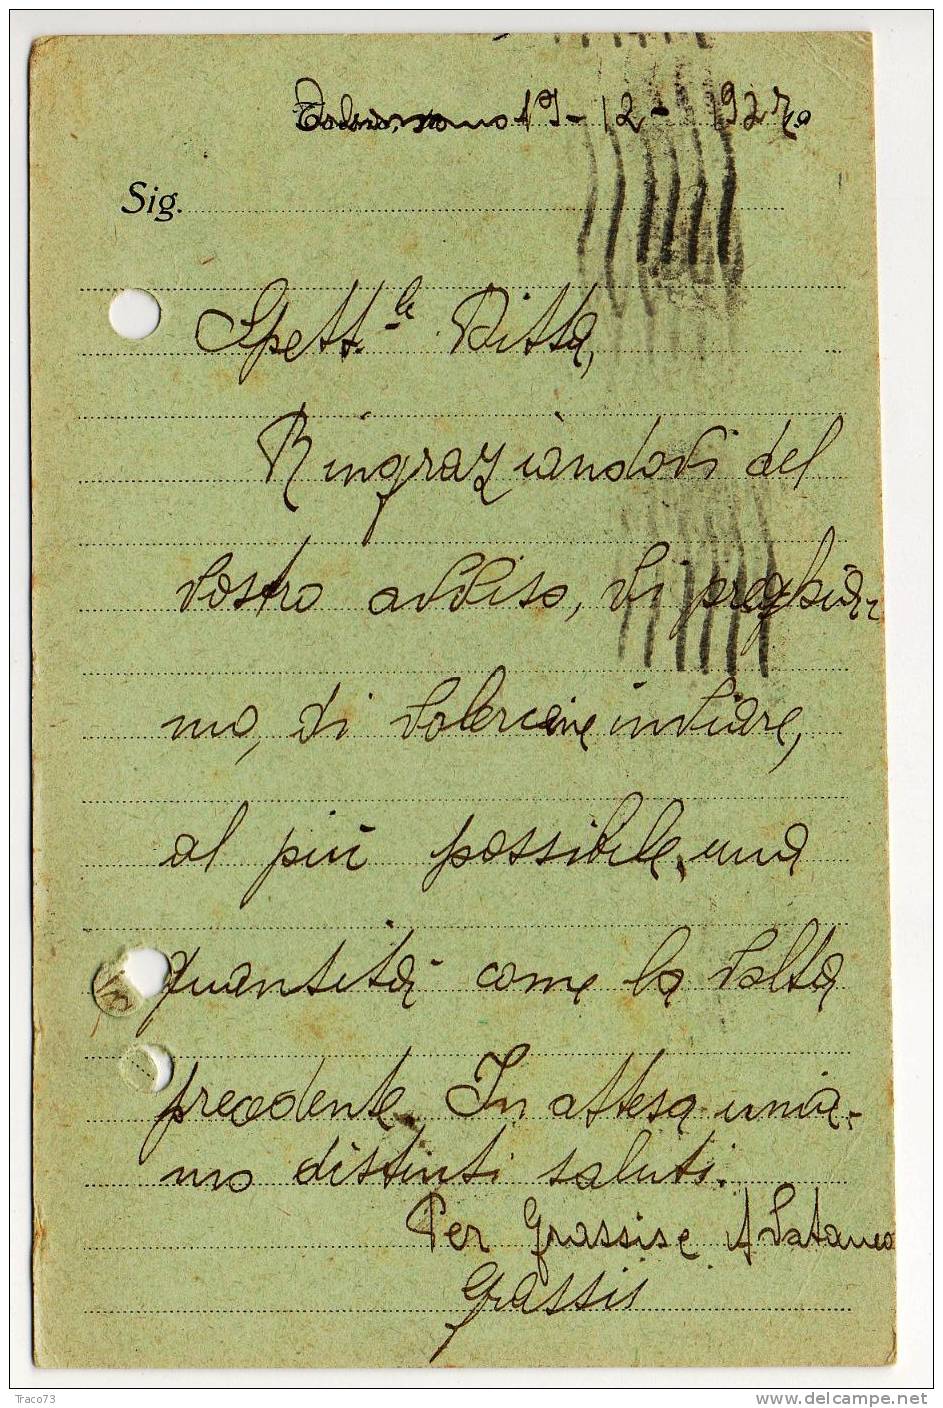 19-12-1927
Sig.
Spett.le Ditta,
Ringraziandovi del
vostro avviso, vi preghia-
mo, di volercene inviare,
al più possibile, una
quantità come la volta
precedente. In attesa unia-
mo distinti saluti.
Per Grassi e
Grassi
Traco73
delcampe.net